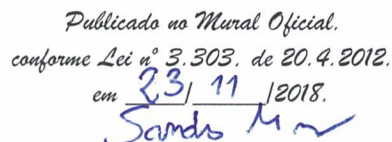 Publicado no Mural Oficial.
conforme Lei nº 3.303, de 20.4.2012.
em 23/ 11 /2018.
Sandro